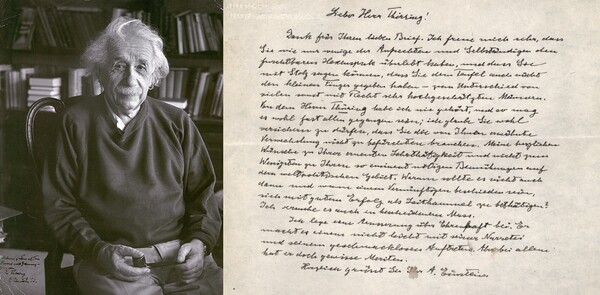 Lieber Herr Thirring!
Dank für Ihren lieben Brief. Ich freue mich sehr, dass
Sie wie nur wenige der Aufrechten und Selbständigen den
furchtbaren Hexensabat überlebt haben, und dass Sie
mit Stolz sagen können, dass Sie dem Teufel auch nicht
den kleinen Finger gegeben haben – zum Unterschied von
vielen sonst mit Recht hochgeschätzten Männern.
Von dem Herrn Thüring habe ich nie gehört, und er mag
es wohl fast allen gegangen sein; ich glaube Sie wohl
versichern zu dürfen, dass Sie die von Ihnen erwähnte
Verwechslung nicht zu befürchten brauchen. Meine herzlichen
Wünsche zu Ihrer erneuten Lehrthätigkeit und nicht zum
Wenigsten zu Ihren so eminent nötigen Bemühungen auf
dem weltpolitischen Gebiet. Warum sollte es nicht auch
dann und wann einem Vernünftigen beschieden sein,
sich mit gutem Erfolg als Leithammel zu bethätigen?
Ich versuche es auch in bescheidenem Mass.
Ich lege eine Äusserung über Ehrenhaft bei. Er
macht es einem nicht leicht mit seiner Narretei
und seinem geschmacklosen Auftreten. Aber bei allem
hat er doch gewisse Meriten.
Herzlich grüsst Sie Ihr A. Einstein